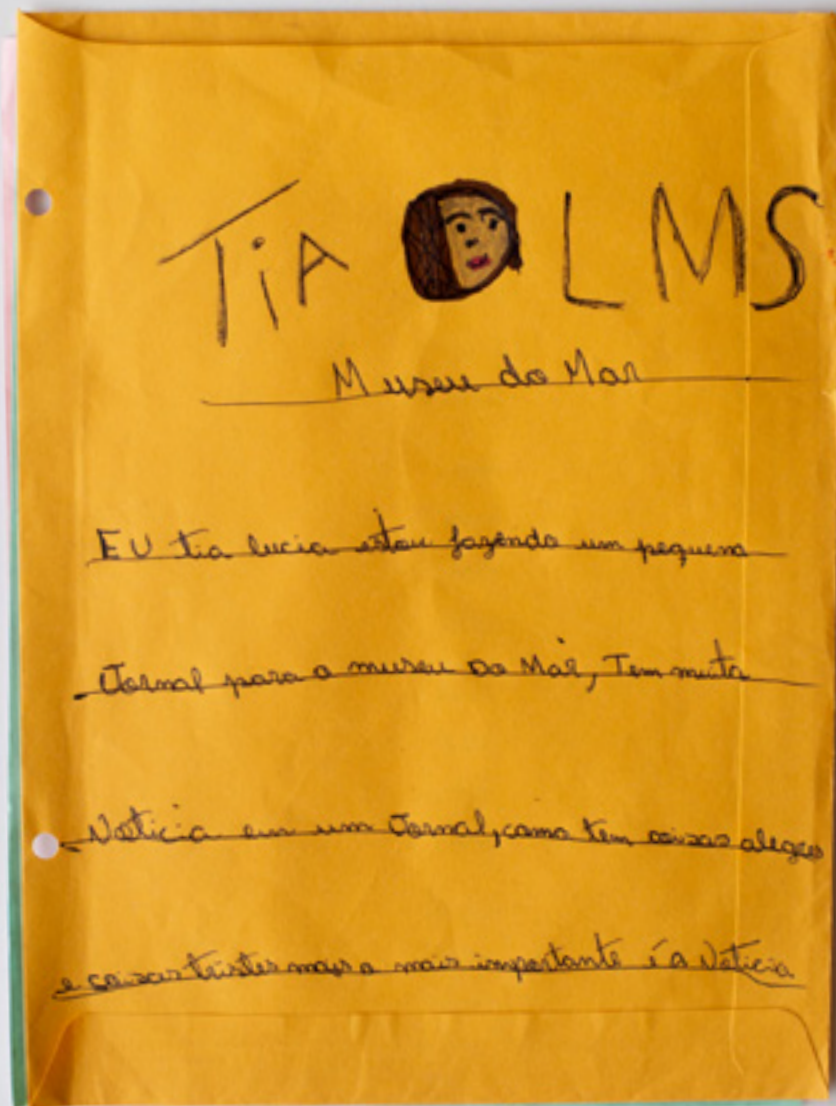 TiA LMS
Museu do Mar
EU tia lucia estou fazendo um pequeno
Jornal para o museu Do Mar, Tem muita
Noticia em um Jornal, como tem coisas alegres
e coisas tristes mais o mais importante é a Noticia